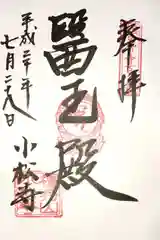 奉拝
醫王殿
平成二十年
七月二十九日
小松寺